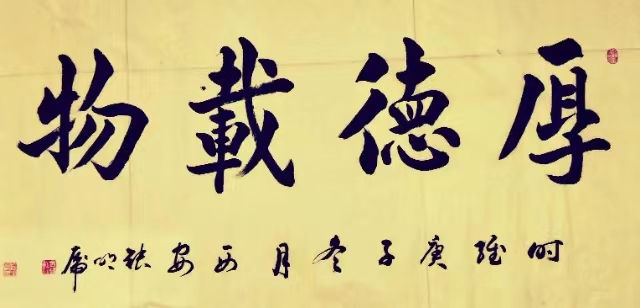 厚德載物
时维庚子冬月西安张明虎